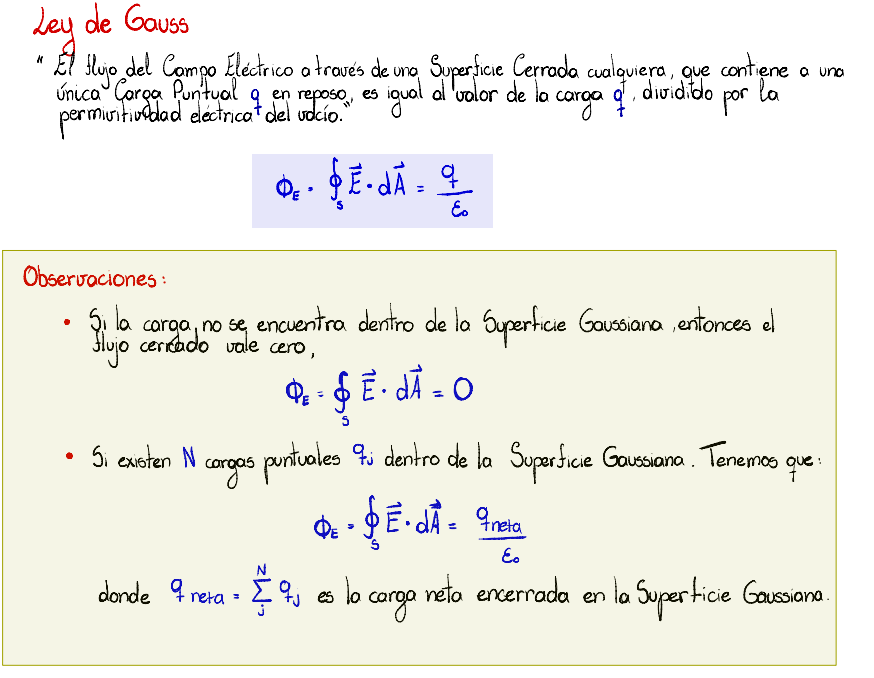 Ley de Gauss
" El flujo del Campo Eléctrico a través de una Superficie Cerrada cualquiera, que contiene a una
única Carga Puntual q en reposo, es igual al valor de la carga q, dividido por la
permivitividad eléctrica del vacío."
Φ_E = ∮_S E⃗ · dA⃗ = q / ε₀
Observaciones:
• Si la carga, no se encuentra dentro de la Superficie Gaussiana, entonces el
flujo cerrado vale cero,
Φ_E = ∮_S E⃗ · dA⃗ = 0
• Si existen N cargas puntuales q_j dentro de la Superficie Gaussiana. Tenemos que:
Φ_E = ∮_S E⃗ · dA⃗ = q_neta / ε₀
donde q_neta = Σ_j^N q_j es la carga neta encerrada en la Superficie Gaussiana.